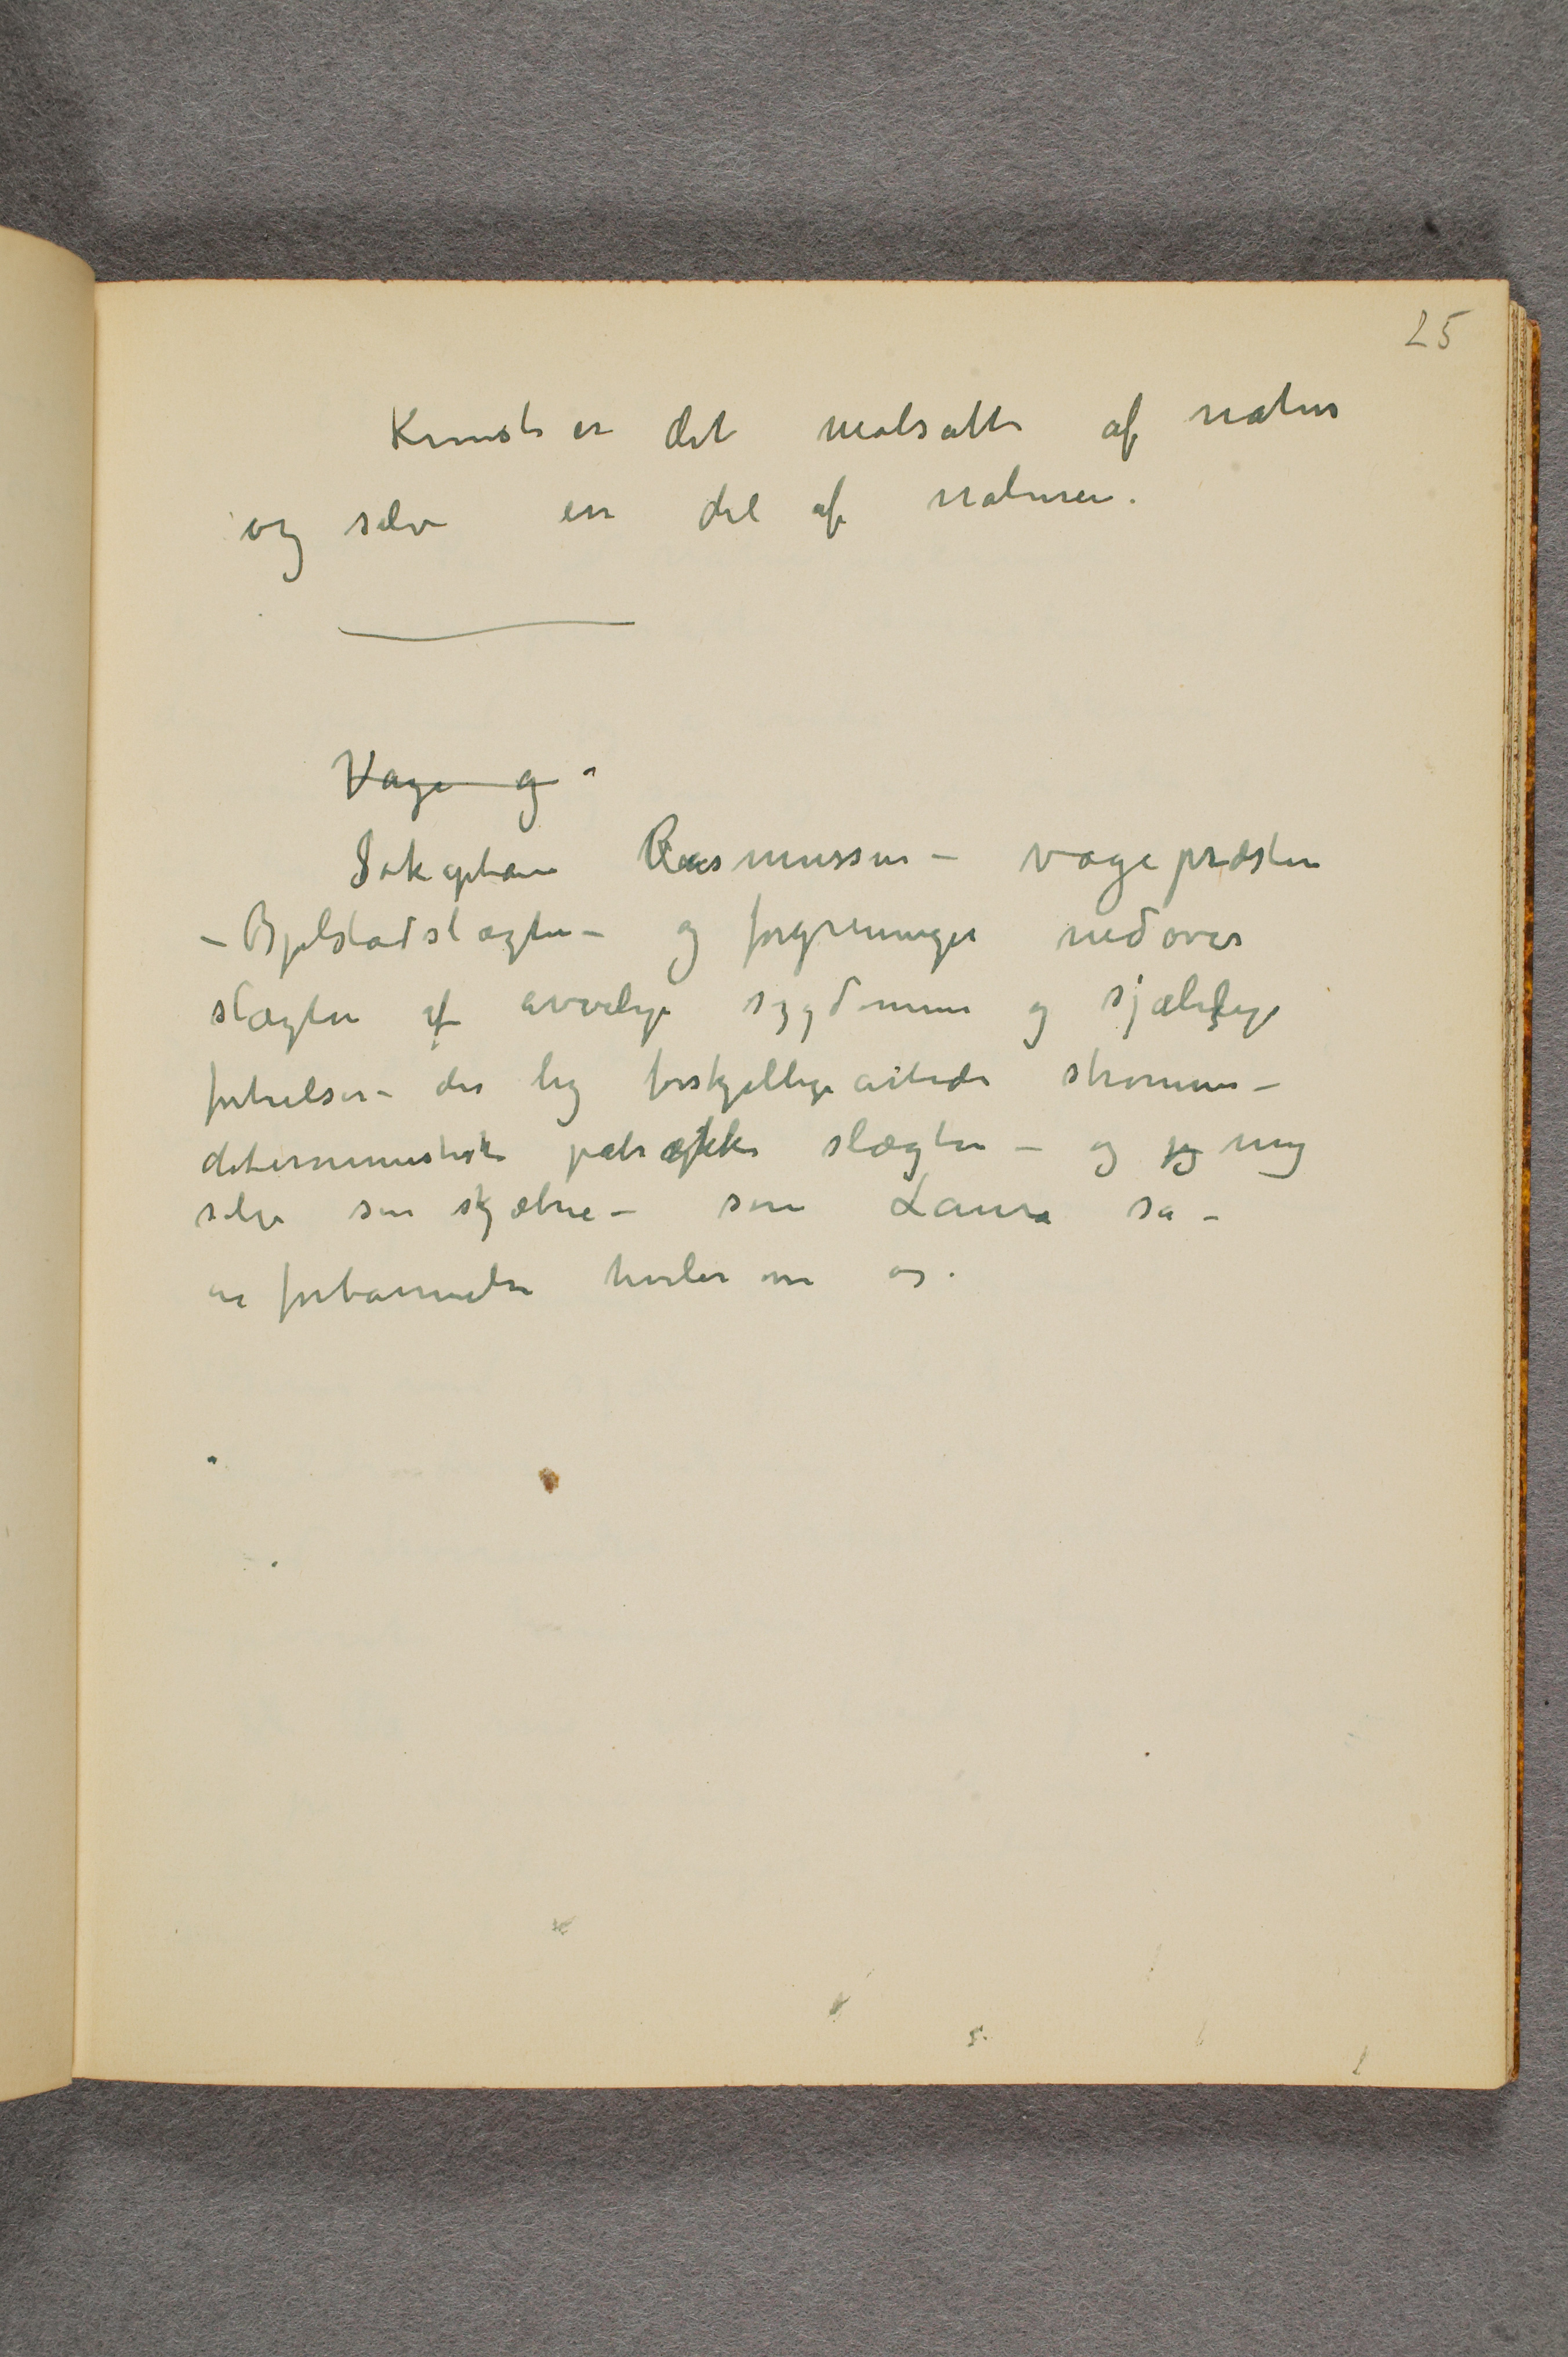 25
Kunst er det motsatte af natur
og selv en del af naturen.
Vage og
Søkaptain Rasmussen – vagepræsten
– Bjelstadslægten – og forgreninger nedover
slægten af arvelige sygdomme og sjælelige
der lig forskjellige artede strømme –
deterministisk påtrykker slægten – og jeg mig
selv sin skjæbne – som Laura sa –
en forbannelse hviler om os.